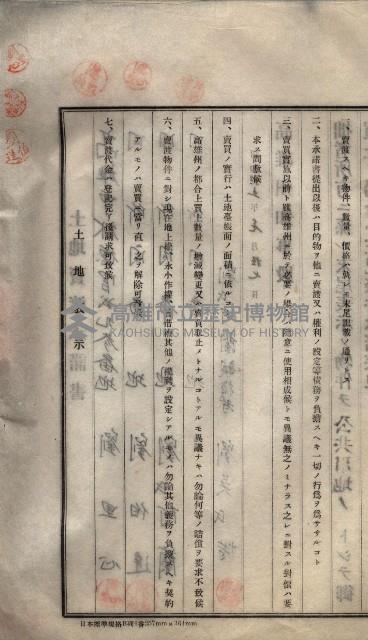 一、賣渡スヘキ物件ノ數量、價格ハ何レモ末尾記載ノ通リトス
二、本承諾書提出以後ハ目的物ヲ他ニ賣渡又ハ權利ノ設定等債務ヲ負擔スヘキ一切ノ行爲ヲ爲ササルコト
三、賣買實施以前ト雖高雄州ニ於テ必要ノ場合ハ隨意ニ使用相成候トモ異議無之ノミナラス之レニ對スル對價ハ要
求スマ間敷候
四、賣買ノ實行ハ土地臺帳面ノ面積ニ依ルコト
五、高雄州ノ都合上買上數量ノ增減變更又ハ賣買取止メトナルコトアルモ異議ナキハ勿論何等ノ賠償ヲ要求不致候
六、賣渡物件ニ對シ現在地上權、永小作權、賃借權其ノ他ノ權利ヲ設定シアルモノハ勿論其他義務ヲ負擔スヘキ契約
アルモノハ賣買ニ當リ直ニ之ヲ解除可致候
七、賣渡代金ハ登記完了後請求可致候
土地表示
高雄市立歷史博物館
KAOHSIUNG MUSEUM OF HISTORY
日本標準規格B列4番257mm×364mm